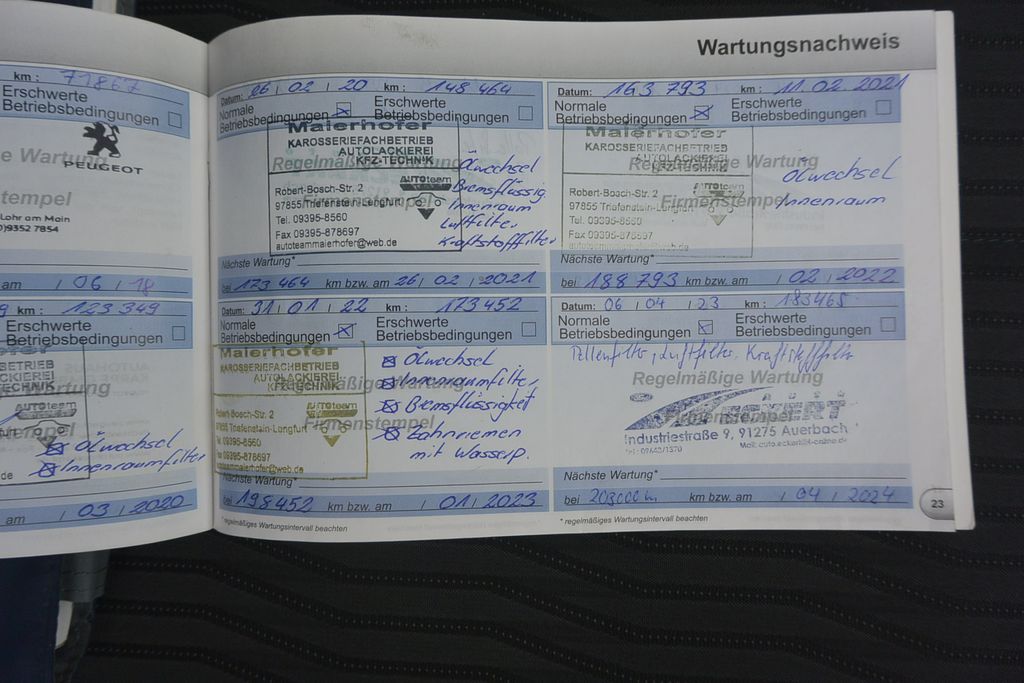 km : 71867
Erschwerte
Betriebsbedingungen
e Wartung
PEUGEOT
tempel
Lohr am Main
)9352 7854
06 / 18
km : 123 349
Erschwerte
Betriebsbedingungen
BETRIEB
CKIEREI
TECHNIK
AUTOteam
Ölwechsel
Innenraumfilter
am / 03 / 2020
Wartungsnachweis
Datum: 26 / 02 / 20 km : 148 464
Normale
Betriebsbedingungen
Erschwerte
Betriebsbedingungen
Maierhofer
KAROSSERIEFACHBETRIEB
AUTOLACKIEREI
KFZ-TECHNIK
Regelmäßige Wartung
AUTOteam
Robert-Bosch-Str. 2
97855 Triefenstein-Lengfurt
Firmenstempel
Tel. 09395-8560
Fax 09395-878697
autoteammaierhofer@web.de
Ölwechsel
Bremsflüssig.
Innenraum
Luftfilter
Kraftstofffilter
Nächste Wartung*
bei 173 464 km bzw. am 26 / 02 / 2021
Datum: 163 793 km : 11. 02. 2021
Normale
Betriebsbedingungen
Erschwerte
Betriebsbedingungen
Maierhofer
KAROSSERIEFACHBETRIEB
AUTOLACKIEREI
KFZ-TECHNIK
Regelmäßige Wartung
AUTOteam
Robert-Bosch-Str. 2
97855 Triefenstein-Lengfurt
Firmenstempel
Tel. 09395-8560
Fax 09395-878697
autoteammaierhofer@web.de
Ölwechsel
Innenraum
Nächste Wartung*
bei 188 793 km bzw. am / 02 / 2022
Datum: 31 / 01 / 22 km : 173 452
Normale
Betriebsbedingungen
Erschwerte
Betriebsbedingungen
Maierhofer
KAROSSERIEFACHBETRIEB
AUTOLACKIEREI
KFZ-TECHNIK
Regelmäßige Wartung
AUTOteam
Robert-Bosch-Str. 2
97855 Triefenstein-Lengfurt
Firmenstempel
Tel. 09395-8560
Fax 09395-878697
autoteammaierhofer@web.de
Ölwechsel
Innenraumfilter
Bremsflüssigkeit
Zahnriemen
mit Wasserp.
Nächste Wartung*
bei 198452 km bzw. am / 01 / 2023
* regelmäßiges Wartungsintervall beachten
Datum: 06 / 04 / 23 km : 183465
Normale
Betriebsbedingungen
Erschwerte
Betriebsbedingungen
Pollenfilter, Luftfilter, Kraftstofffilter
Regelmäßige Wartung
Firmenstempel
Industriestraße 9, 91275 Auerbach
Tel.: 09643/1370
Nächste Wartung*
bei 203000 km bzw. am / 04 / 2024
* regelmäßiges Wartungsintervall beachten
23